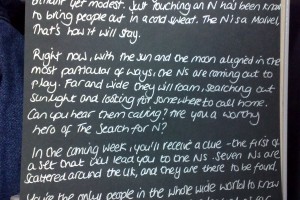 yet modest. Just touching an N has been known
to bring people out in a cold sweat. The N is a Marvel.
That's how it will stay.
Right now, with the sun and the moon aligned in the
most particular of ways, the Ns are coming out to
play. Far and wide they will roam, searching out
sunlight and looking for somewhere to call home.
Can you hear them calling? Are you a worthy
hero of The Search for N?
In the coming week, you'll receive a clue - the first of
a set that will lead you to the Ns. Seven Ns are
scattered around the UK, and they are there to be found.
You're the only people in the whole wide world to know